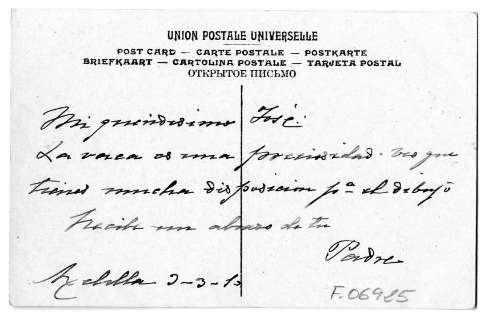 UNION POSTALE UNIVERSELLE
POST CARD – CARTE POSTALE – POSTKARTE
BRIEFKAART – CARTOLINA POSTALE – TARJETA POSTAL
ОТКРЫТОЕ ПИСЬМО
Mi queridisimo José:
La vaca es una preciosidad. veo que
tienes mucha disposicion pª el dibujo
Recibe un abrazo de tu
Padre
Melilla 3-3-1
F.06925